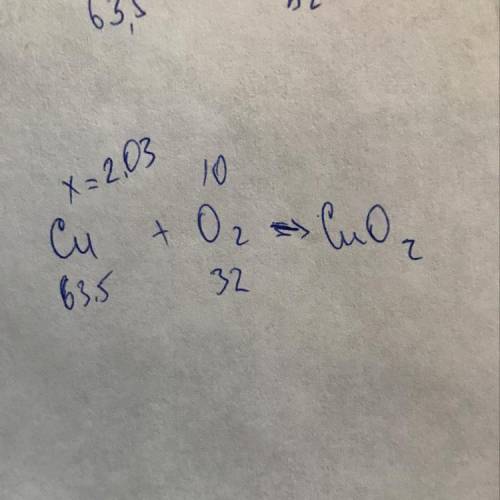 63,5
x=2,03 10
Cu + O₂ => CuO₂
63.5 32